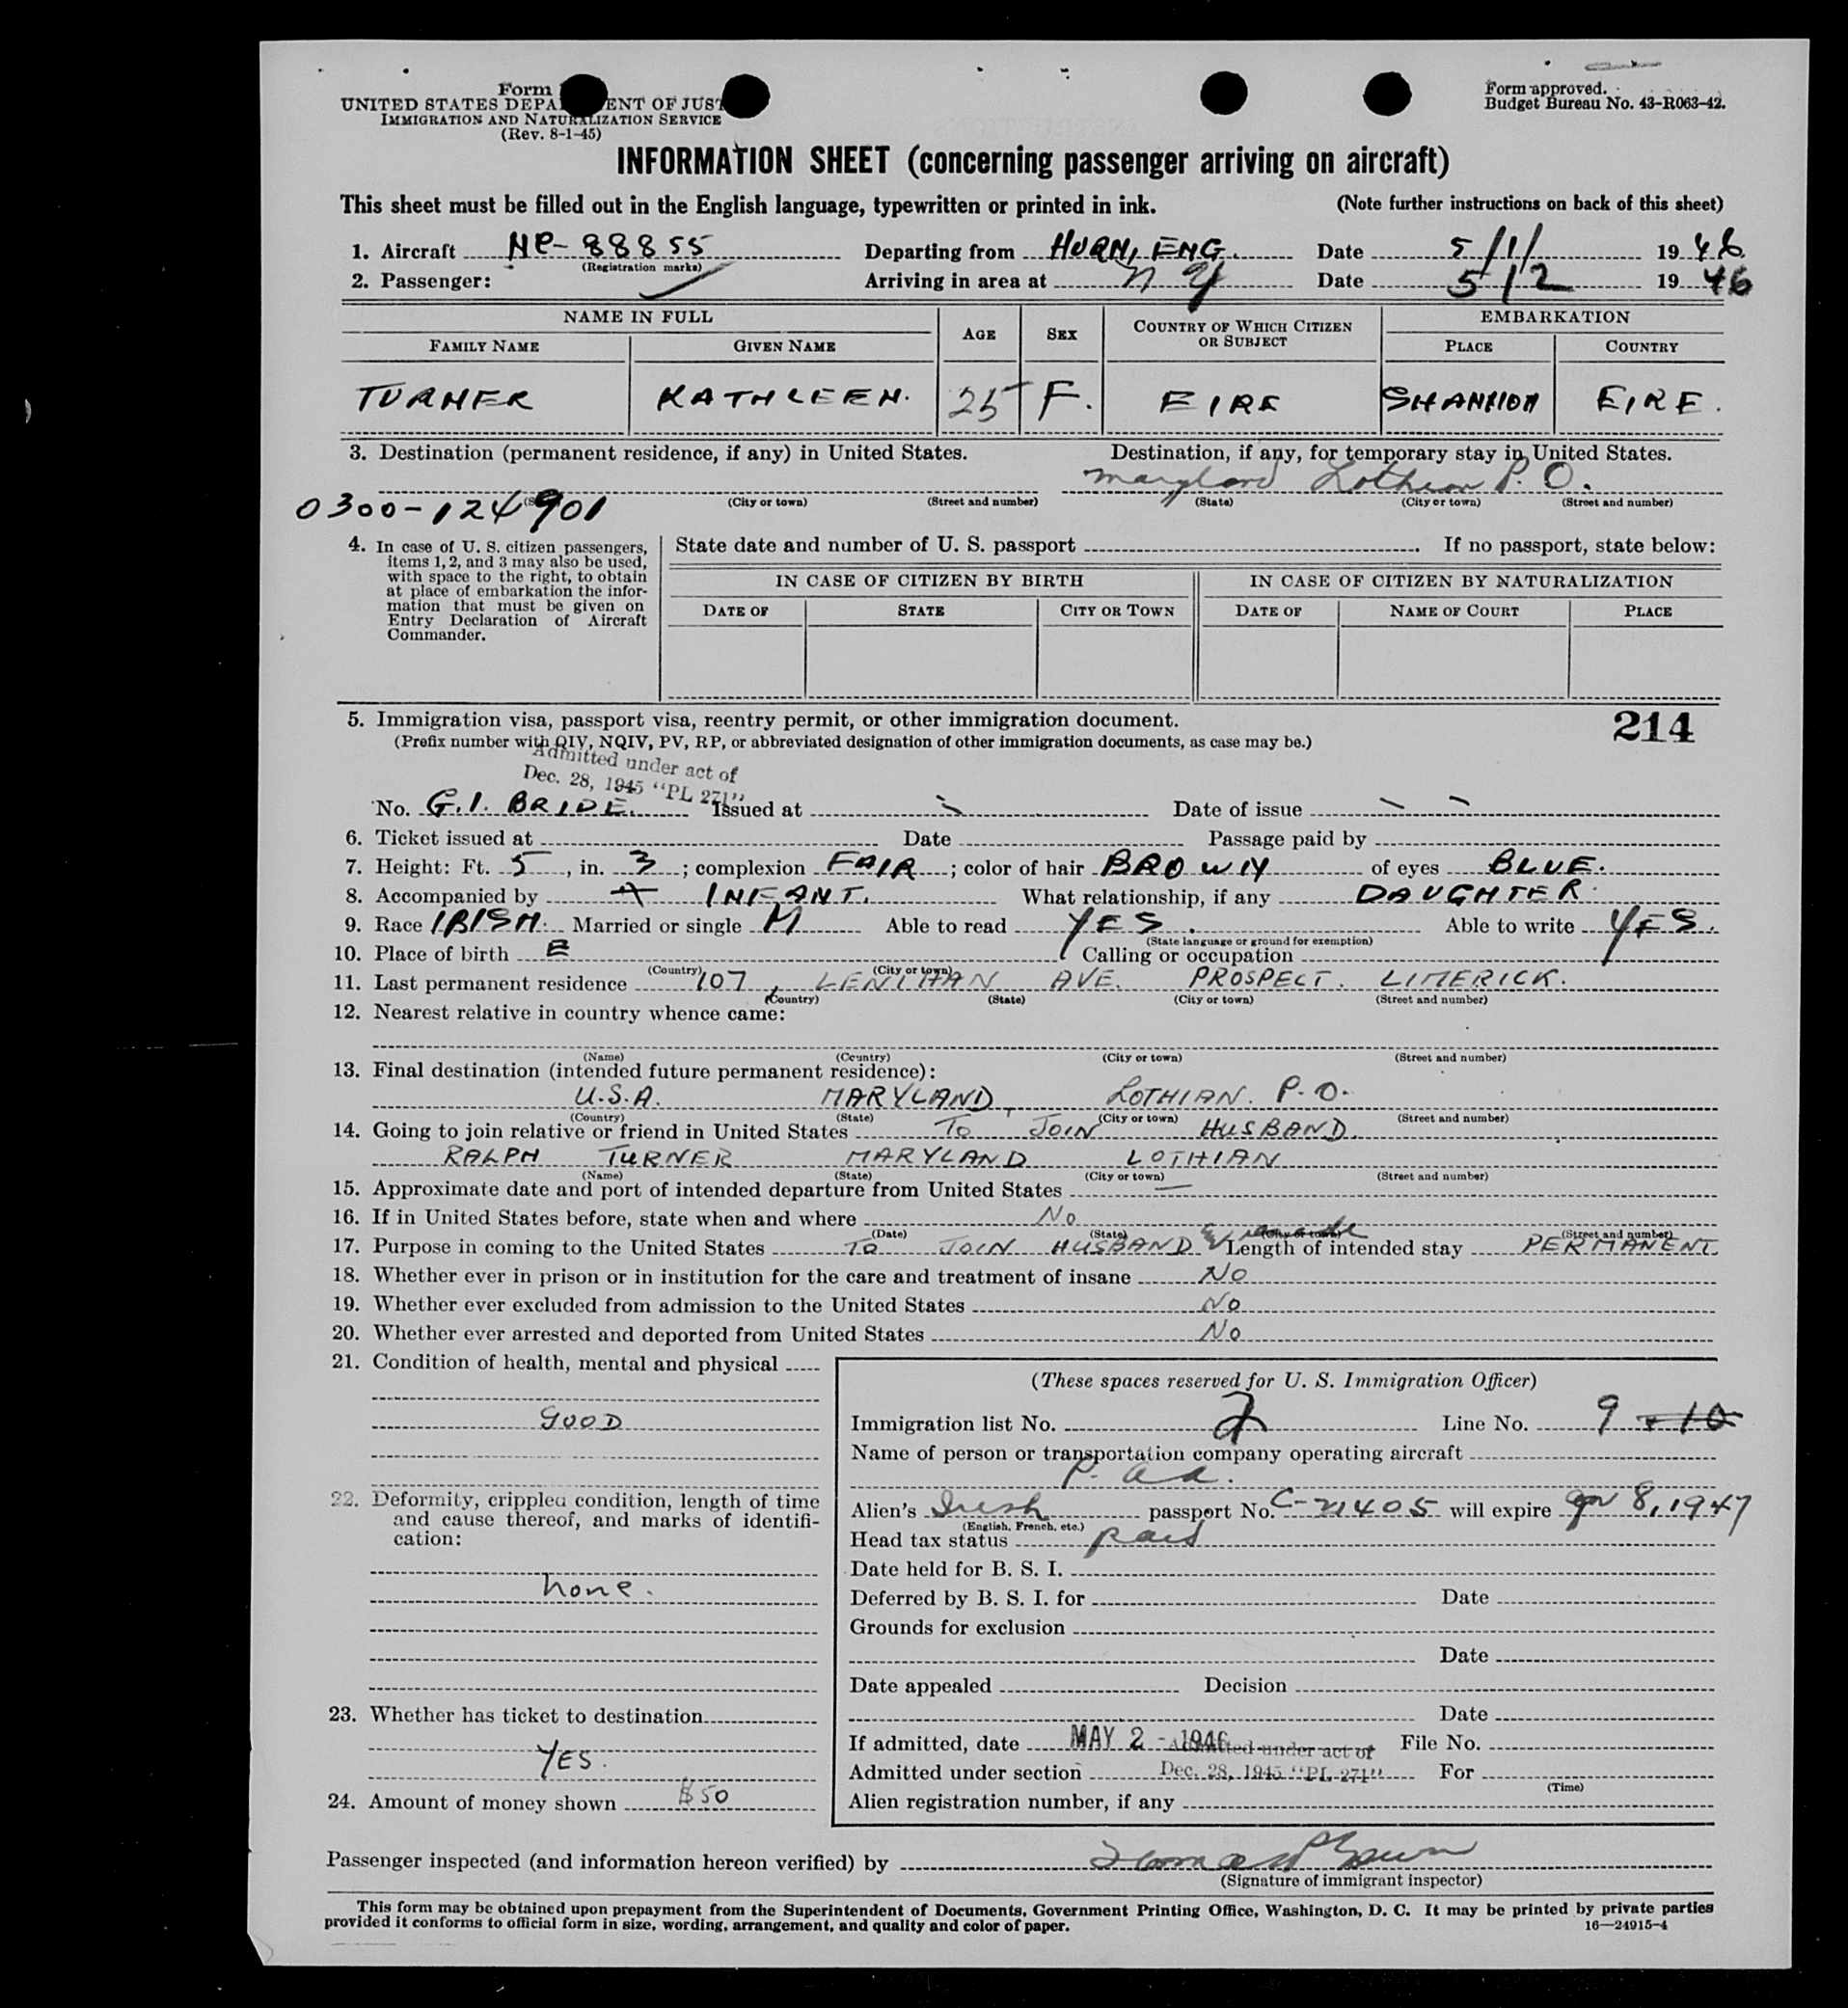 Form
UNITED STATES DEPA ENT OF JUST
IMMIGRATION AND NATURALIZATION SERVICE
(Rev. 8-1-45)
Form approved.
Budget Bureau No. 43-R063-42.
INFORMATION SHEET (concerning passenger arriving on aircraft)
This sheet must be filled out in the English language, typewritten or printed in ink. (Note further instructions on back of this sheet)
1. Aircraft NC-88855 Departing from HURN, ENG. Date 5/1/ 1946
(Registration marks)
2. Passenger: Arriving in area at NY Date 5/2 1946
NAME IN FULL AGE SEX COUNTRY OF WHICH CITIZEN OR SUBJECT EMBARKATION
FAMILY NAME GIVEN NAME PLACE COUNTRY
TURNER KATHLEEN. 25 F. EIRE SHANNON EIRE.
3. Destination (permanent residence, if any) in United States. Destination, if any, for temporary stay in United States.
Maryland Lothian P.O.
0300-124901 (City or town) (Street and number) (State) (City or town) (Street and number)
4. In case of U. S. citizen passengers, items 1, 2, and 3 may also be used, with space to the right, to obtain at place of embarkation the information that must be given on Entry Declaration of Aircraft Commander.
State date and number of U. S. passport . If no passport, state below:
IN CASE OF CITIZEN BY BIRTH IN CASE OF CITIZEN BY NATURALIZATION
DATE OF STATE CITY OR TOWN DATE OF NAME OF COURT PLACE
5. Immigration visa, passport visa, reentry permit, or other immigration document. 214
(Prefix number with QIV, NQIV, PV, RP, or abbreviated designation of other immigration documents, as case may be.)
Admitted under act of
Dec. 28, 1945 "PL 271"
No. G.I. BRIDE. Issued at Date of issue
6. Ticket issued at Date Passage paid by
7. Height: Ft. 5, in. 3; complexion FAIR; color of hair BROWN of eyes BLUE.
8. Accompanied by INFANT. What relationship, if any DAUGHTER
9. Race IRISH. Married or single M Able to read YES. Able to write YES.
(State language or ground for exemption)
10. Place of birth E Calling or occupation
(Country) (City or town)
11. Last permanent residence 107, LENIHAN AVE. PROSPECT. LIMERICK.
(Country) (State) (City or town) (Street and number)
12. Nearest relative in country whence came:
(Name) (Country) (City or town) (Street and number)
13. Final destination (intended future permanent residence):
U.S.A. MARYLAND, LOTHIAN. P.O.
(Country) (State) (City or town) (Street and number)
14. Going to join relative or friend in United States TO JOIN HUSBAND.
RALPH TURNER MARYLAND LOTHIAN
(Name) (State) (City or town) (Street and number)
15. Approximate date and port of intended departure from United States —
16. If in United States before, state when and where No
(Date) (State) (City or town) (Street and number)
17. Purpose in coming to the United States TO JOIN HUSBAND Length of intended stay PERMANENT
18. Whether ever in prison or in institution for the care and treatment of insane No
19. Whether ever excluded from admission to the United States No
20. Whether ever arrested and deported from United States No
21. Condition of health, mental and physical
GOOD
22. Deformity, crippled condition, length of time and cause thereof, and marks of identification:
none.
23. Whether has ticket to destination
YES.
24. Amount of money shown $50
(These spaces reserved for U. S. Immigration Officer)
Immigration list No. 2 Line No. 9 + 10
Name of person or transportation company operating aircraft
P. a a.
Alien's Irish passport No. C-21405 will expire 8, 1947
(English, French, etc.)
Head tax status paid
Date held for B. S. I.
Deferred by B. S. I. for Date
Grounds for exclusion
Date
Date appealed Decision
Date
If admitted, date MAY 2 - 1946 Admitted under act of File No.
Admitted under section Dec. 28, 1945 "PL 271" For
(Time)
Alien registration number, if any
Passenger inspected (and information hereon verified) by
(Signature of immigrant inspector)
This form may be obtained upon prepayment from the Superintendent of Documents, Government Printing Office, Washington, D. C. It may be printed by private parties
provided it conforms to official form in size, wording, arrangement, and quality and color of paper. 16—24915-4